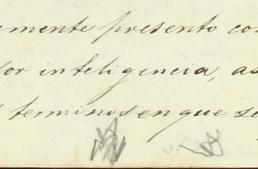 mente presento con
or inteligencia, as
terminos en que se